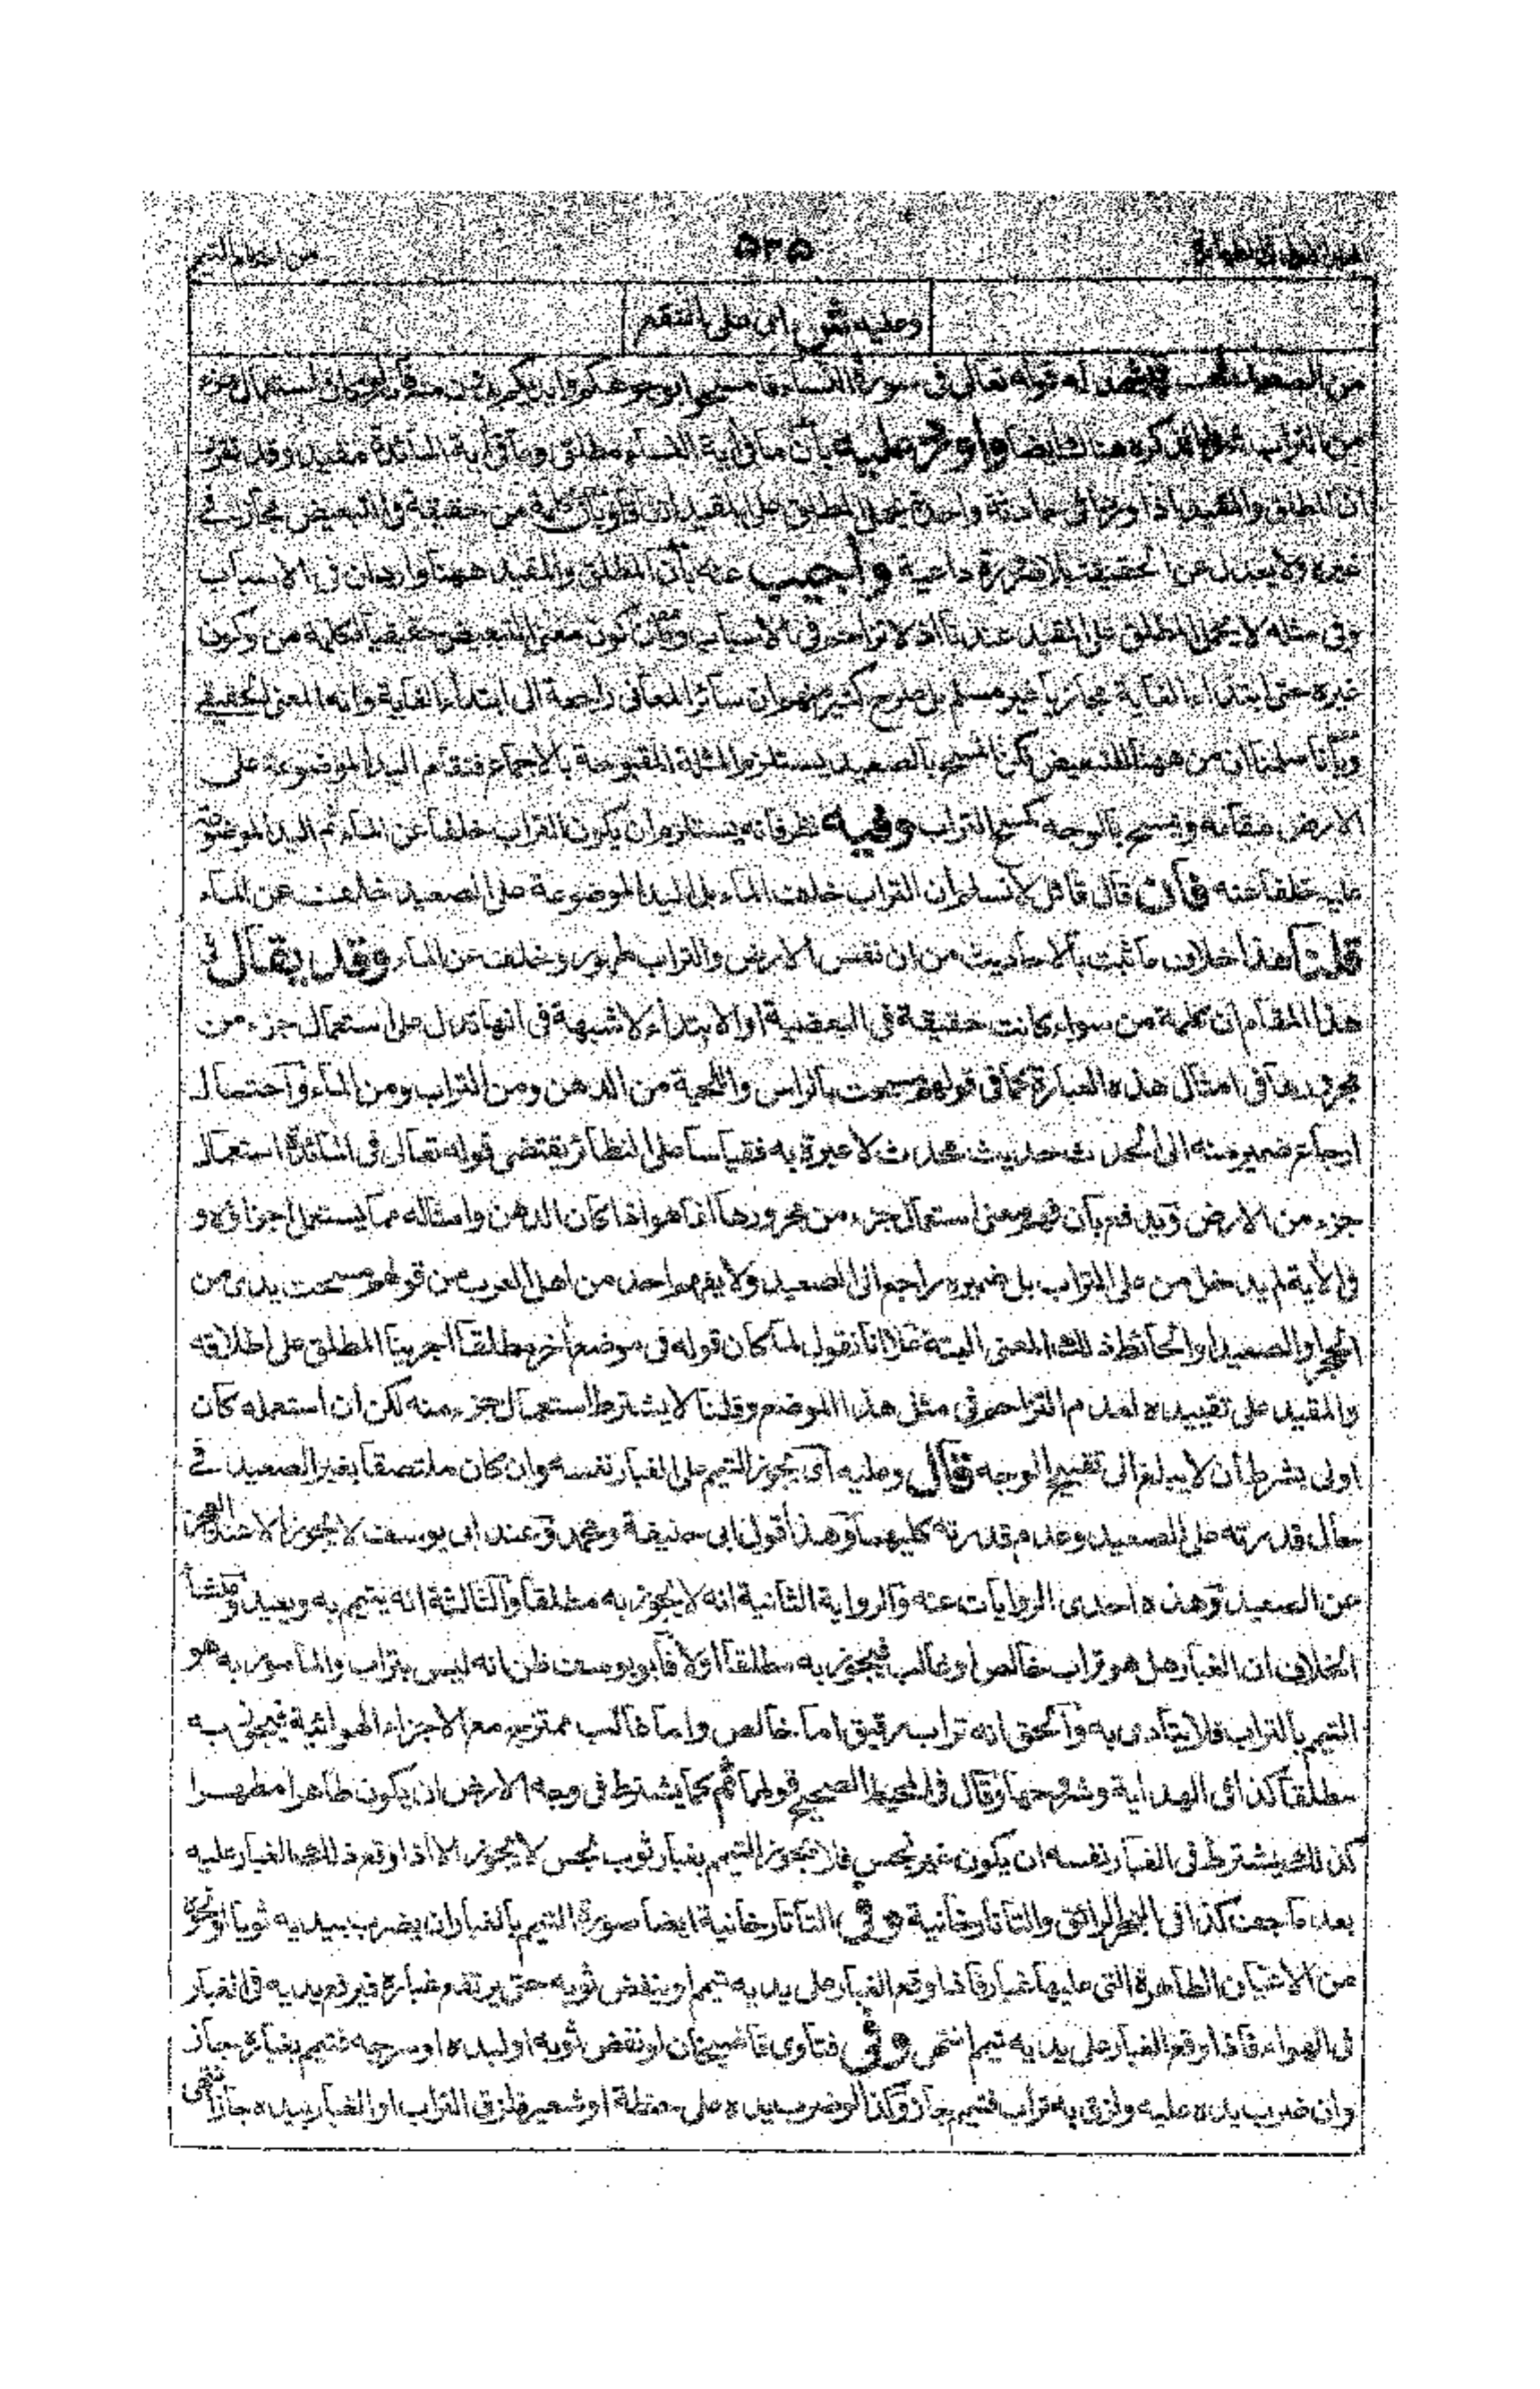 من احكام التيمم
۵۳۵
وعليه ش اى على النقع
من الصعيد قوله تعالى فى سورة النساء فامسحوا بوجوهكم وايديكم استعمال جزء
من التراب هناك ايضا واورد عليه بان ما فى أية النساء مطلق وما فى أية المائدة مقيد وقد تقرر
ان المطلق والمقيد اذا وردا فى حادثة واحدة يحمل المطلق على المقيد كلمة من حقيقة فى التبعيض مجاز فى
غيره ولا يعدل عن الحقيقة بلا ضرورة داعية واجيب عنه بان المطلق والمقيد ههنا واردان فى الاسباب
وفى مثله لا يحمل المطلق على المقيد عندنا اذ لا تزاحم فى الاسباب وبان كون معنى التبعيض حقيقيا لكلمة من وكون
غيره حتى ابتداء الغاية مجازيا غير مسلم بل صرح كثير منهم ان سائر المعانى راجعة الى ابتداء الغاية وانه المعنى الحقيقى
وبانا سلمنا ان من ههنا للتبعيض لكن المسح بالصعيد يستلزم المثلة المقبوحة بالاجماع فتقام اليد الموضوعة على
الارض مقامه ويمسح بالوجه كمسح التراب وفيه نظر فانه يستلزم ان يكون التراب خلفا عن الماء ثم اليد الموضوعة
عليه خلفا عنه فان قال قائل لا نسلم ان التراب خلف الماء بل اليد الموضوعة على الصعيد خلف عن الماء
قلنا هذا خلاف ما ثبت بالاحاديث من ان نفس الارض والتراب طهور وخلف عن الماء وقد يقال فى
هذا المقام ان كلمة من سواء كانت حقيقة فى البعضية او الابتداء لا شبهة فى انها تدل على استعمال جزء من
مجرورها فى امثال هذه العبارة كما فى قولهم مسحت بالراس واللحية من الدهن ومن التراب ومن الماء واحتمال
ارجاع ضمير منه الى الحدث حديث محدث لا عبرة به فقياسا على النظائر يقتضى قوله تعالى فى المائدة استعمال
جزء من الارض ويدفع بان فهم معنى استعمال جزء من مجرورها انما هو اذا كان الدهن وامثاله مما يستعمل اجزاؤه و
فى الأية لم يدخل من على التراب بل ضميره راجع الى الصعيد ولا يفهم احد من اهل العرب من قولهم مسحت يدى من
الحجر او الصعيد او الحائط ذلك المعنى البتة علا انا نقول لما كان قوله فى موضع أخر مطلقا اجرينا المطلق على اطلاقه
والمقيد على تقييده لعدم التزاحم فى مثل هذا الموضع وقلنا لا يشترط استعمال جزء منه لكن ان استعمله كان
اولى بشرط ان لا يبلغ الى تقبيح الوجه قال وعليه اى يجوز التيمم على الغبار نفسه وان كان ملتصقا بغير الصعيد فى
حال قدرته على الصعيد وعدم قدرته كليهما وهذا قول ابى حنيفة ومحمد وعند ابى يوسف لا يجوز الا عند العجز
عن الصعيد وهذه احدى الروايات عنه والرواية الثانية انه لا يجوز به مطلقا والثالثة انه يتيمم به ويعيد ومنشأ
الخلاف ان الغبار هل هو تراب خالص او غالب فيجوز به مطلقا اولا فابو يوسف ظن انه ليس بتراب والمامور به هو
التيمم بالتراب فلا يتأدى به والحق انه تراب رقيق اما خالص واما غالب ممتزج مع الاجزاء الهوائية فيجزى به
مطلقا كذا فى الهداية وشروحها وقال فى المحيط الصحيح قولهما ثم كما يشترط فى وجه الارض ان يكون طاهرا مطهرا
كذلك يشترط فى الغبار نفسه ان يكون غير نجس فلا يجوز التيمم بغبار ثوب نجس لا يجوز الا اذا وقع ذلك الغبار عليه
بعد ما جف كذا فى البحر الرائق والتاتارخانية وفى التاتارخانية ايضا صورة التيمم بالغبار ان يضرب بيديه ثوبا او نحوه
من الاعيان الطاهرة التى عليها غبار فاذا وقع الغبار على يديه تيمم او ينفض ثوبه حتى يرتفع غباره فيرفع يديه فى الغبار
فى الهواء فاذا وقع الغبار على يديه تيمم انتهى وفى فتاوى قاضيخان لو نفض ثوبه او لبده او سرجه فتيمم بغباره جاز
وان ضرب يده عليه ولزق به تراب فتيمم جاز وكذا لو ضرب يده على حنطة او شعير فلزق التراب او الغبار بيده جاز انتهى